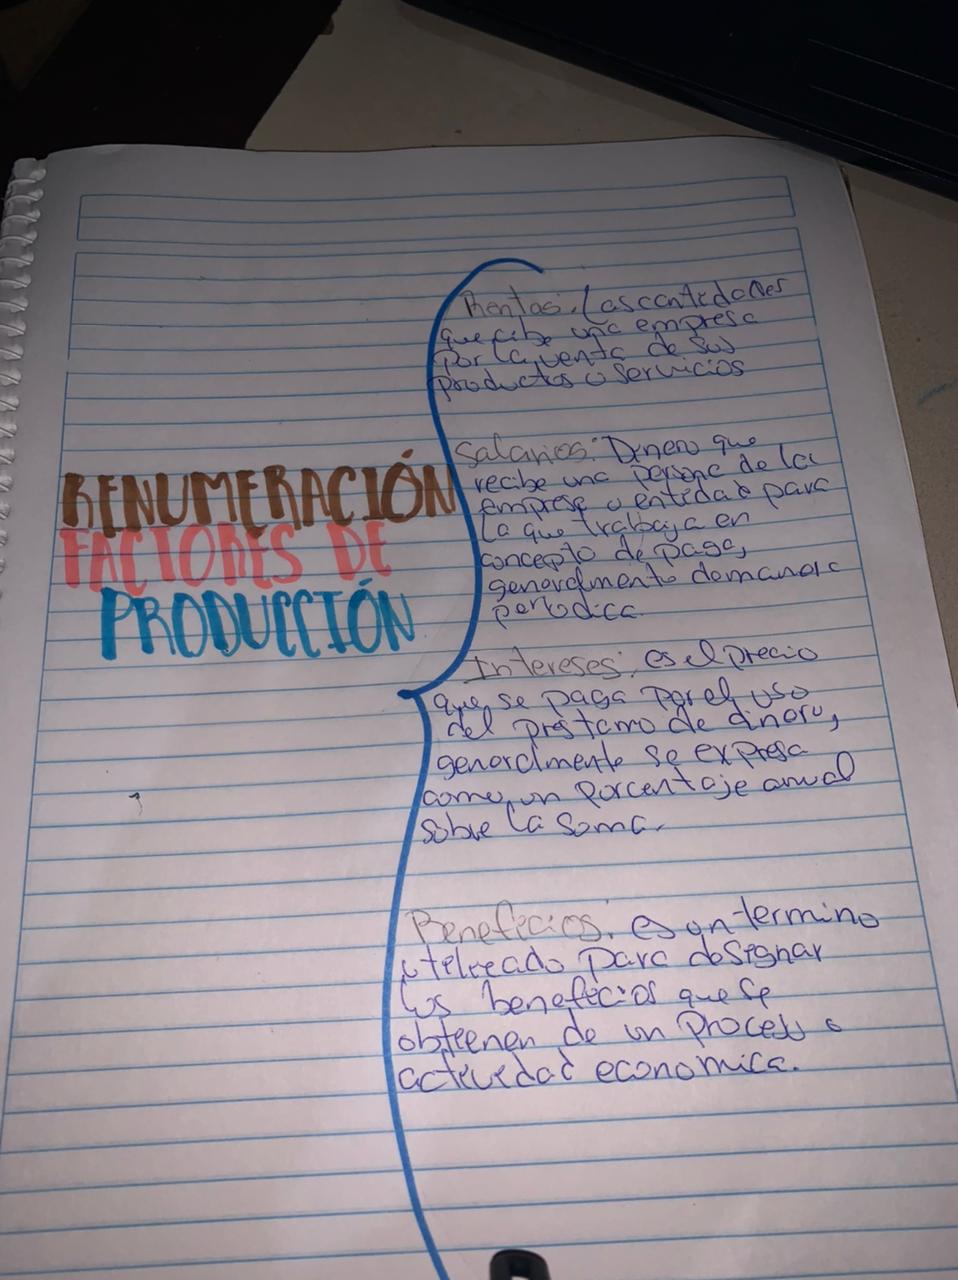 RENUMERACIÓN
FACTORES DE
PRODUCCIÓN
Rentas: Las cantidades
que cibe una empresa
por la venta de sus
productos o servicios
Salarios: Dinero que
recibe una persona de la
empresa o entidad para
la que trabaja en
concepto de paga,
generalmente de manera
periodica.
Intereses: es el precio
que se paga por el uso
del prestamo de dinero,
generalmente se expresa
como un porcentaje anual
sobre la soma.
Beneficios: es un termino
utilizado para designar
los beneficios que se
obtienen de un proceso o
actividad economica.